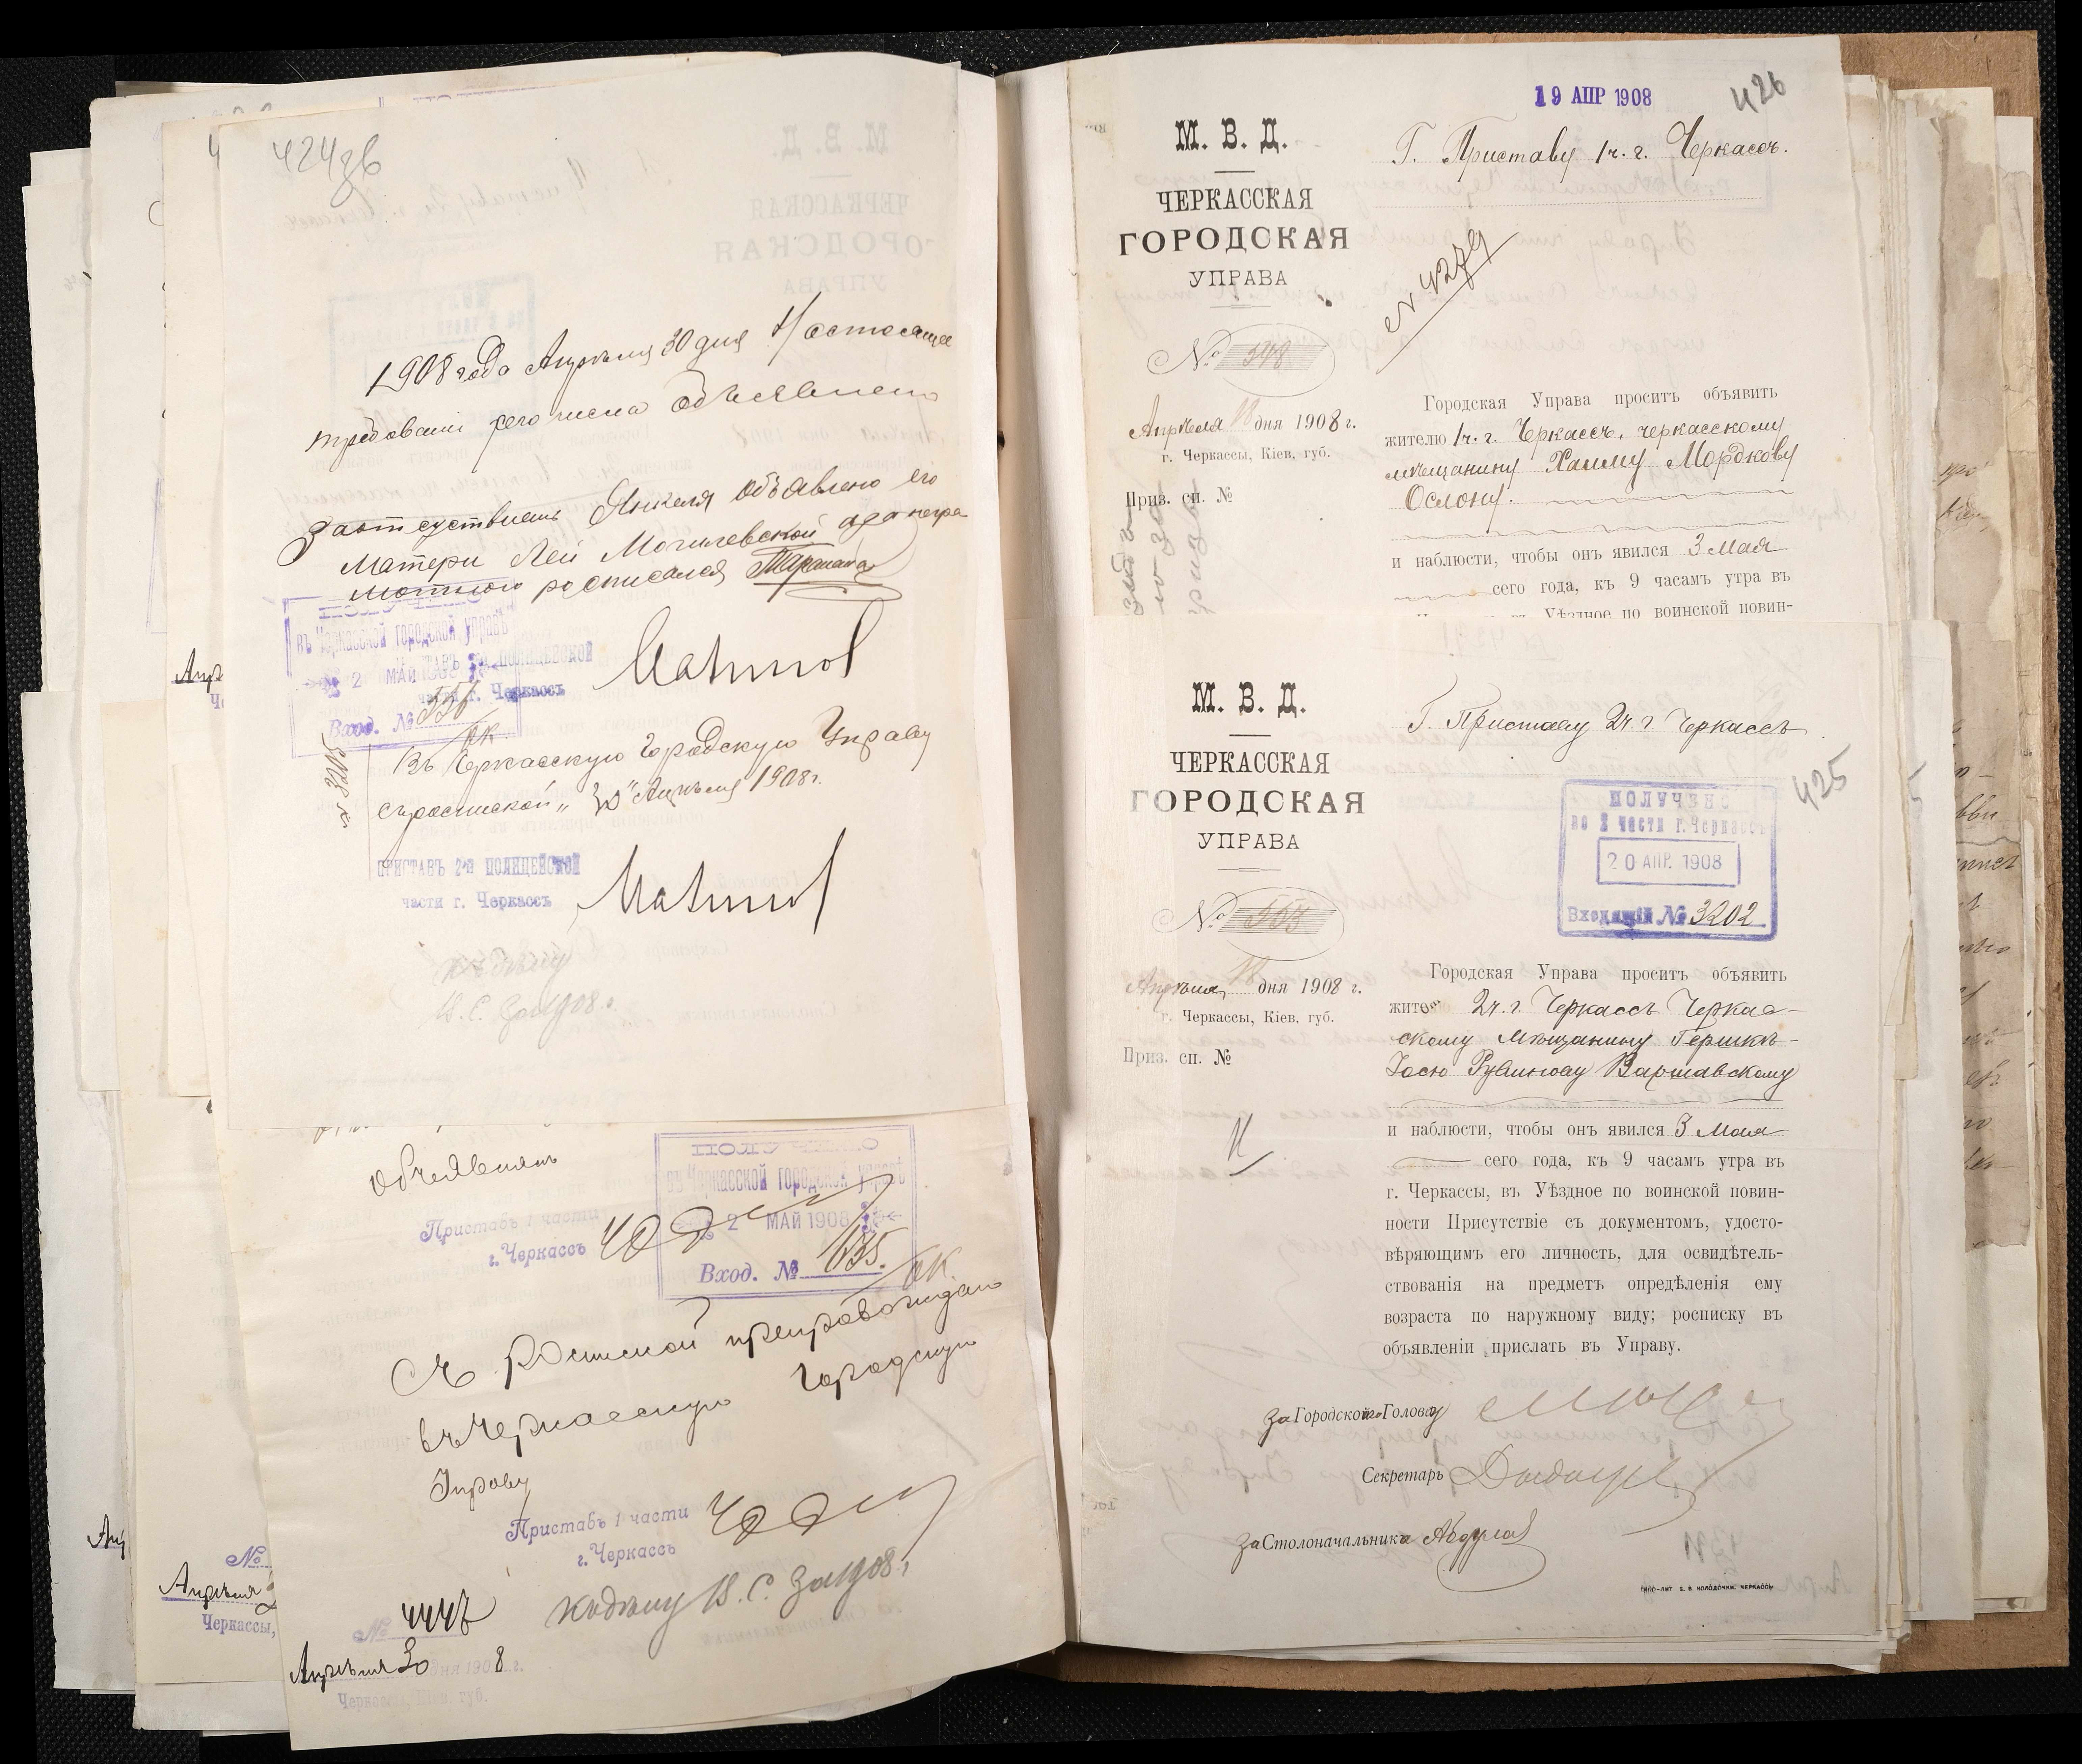 424 зв
1908 года Апрѣля 30 дня Настоящее
требованіе сего числа объявлено
За отсутствіемъ Янкеля объявлено его
Матери Леи Могилевской а за неграмотную росписался
ПОЛУЧЕНО
въ Черкасской городской управѣ
2 МАЙ 1908
Вход. №
ПРИСТАВЪ 2-й ПОЛИЦЕЙСКОЙ
части г. Черкассъ
№ 3205
Въ Черкасскую Городскую Управу
съ роспиской „30" Апрѣля 1908 г.
ПРИСТАВЪ 2-й ПОЛИЦЕЙСКОЙ
части г. Черкассъ
къ дѣлу
В. С. за 1908 г.
объявлялъ
Приставъ 1 части
г. Черкассъ
ПОЛУЧЕНО
въ Черкасской городской управѣ
2 МАЙ 1908
Вход. № 635.
Съ роспиской препровождаю
въ Черкасскую Городскую
Управу
Приставъ 1 части
г. Черкассъ
къ дѣлу В. С. за 1908 г.
№ 4447
Апрѣля 30 дня 1908 г.
Черкассы, Кіев. губ.
№
Апрѣля
Черкассы,
19 АПР 1908
426
М. В. Д.
ЧЕРКАССКАЯ
ГОРОДСКАЯ
УПРАВА
№ 548
Апрѣля 18 дня 1908 г.
г. Черкассы, Кіев. губ.
Приз. сп. №
Г. Приставу 1 ч. г. Черкассъ.
№ 4279
Городская Управа проситъ объявить
жителю 1 ч. г. Черкассъ, черкасскому
мѣщанину Хаиму Мордкову
Ослону.
и наблюсти, чтобы онъ явился 3 Мая
сего года, къ 9 часамъ утра въ
Уѣздное по воинской повин-
М. В. Д.
ЧЕРКАССКАЯ
ГОРОДСКАЯ
УПРАВА
№ 553
Апрѣля 18 дня 1908 г.
г. Черкассы, Кіев. губ.
Приз. сп. №
Г. Приставу 2 ч. г. Черкассъ
425
ПОЛУЧЕНО
во 2 части г. Черкассъ
20 АПР. 1908
Входящій № 3202
Городская Управа проситъ объявить
жителю 2 ч. г. Черкассъ Черкас-
скому Мѣщанину Гершкѣ-
Іосю Рувинову Варшавскому
и наблюсти, чтобы онъ явился 3 Мая
сего года, къ 9 часамъ утра въ
г. Черкассы, въ Уѣздное по воинской повин-
ности Присутствіе съ документомъ, удосто-
вѣряющимъ его личность, для освидѣтель-
ствованія на предметъ опредѣленія ему
возраста по наружному виду; росписку въ
объявленіи прислать въ Управу.
За Городского Голову
Секретарь
За Столоначальника
ТИПО-ЛИТ. В. В. КОЛОДОЧКИ, ЧЕРКАССЫ